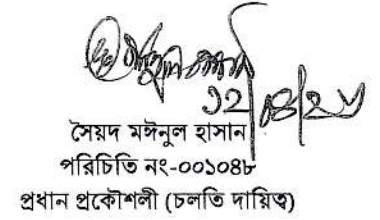 ১২/০৪/২৫
সৈয়দ মঈনুল হাসান
পরিচিতি নং-০০১০৪৮
প্রধান প্রকৌশলী (চলতি দায়িত্ব)